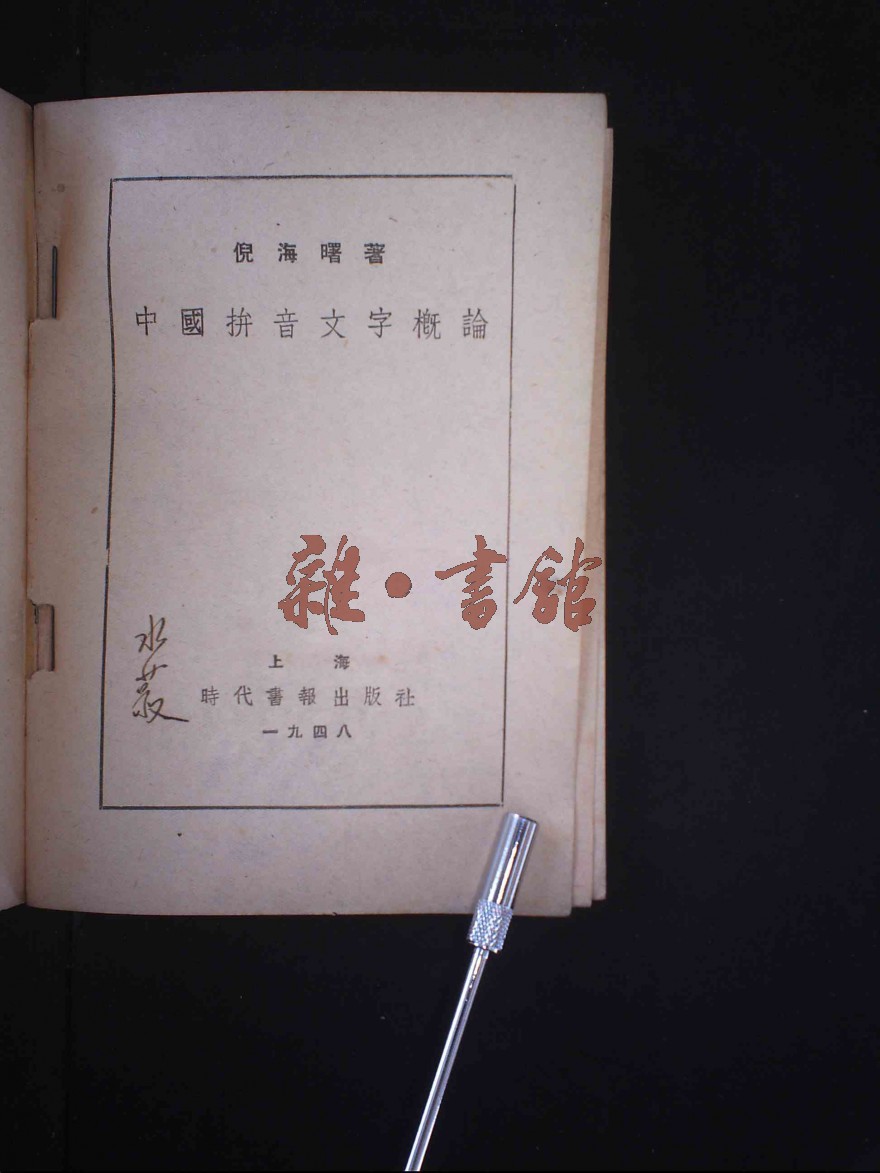 倪海曙著
中國拚音文字概論
雜·書館
上海
時代書報出版社
一九四八